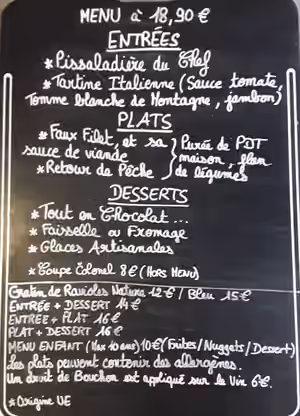 MENU à 18,90 €
ENTRÉES
* Pissaladière du Chef
* Tartine Italienne (Sauce tomate,
Tomme blanche de Montagne, jambon)
PLATS
* Faux Filet, et sa
sauce de viande
* Retour de Pêche
Purée de PDT
maison, flan
de légumes
DESSERTS
* Tout en Chocolat ...
* Faisselle ou Fromage
* Glaces Artisanales
* Coupe Colonel 8€ (HORS MENU)
Gratin de Ravioles Nature 12€ / Bleu 15€
ENTRÉE + DESSERT 14€
ENTRÉE + PLAT 16€
PLAT + DESSERT 16€
MENU ENFANT (Max 10 ans) 10€ (Frites/Nuggets/Dessert)
Les plats peuvent contenir des allergènes.
Un droit de Bouchon est appliqué sur le Vin 6€.
* Origine UE